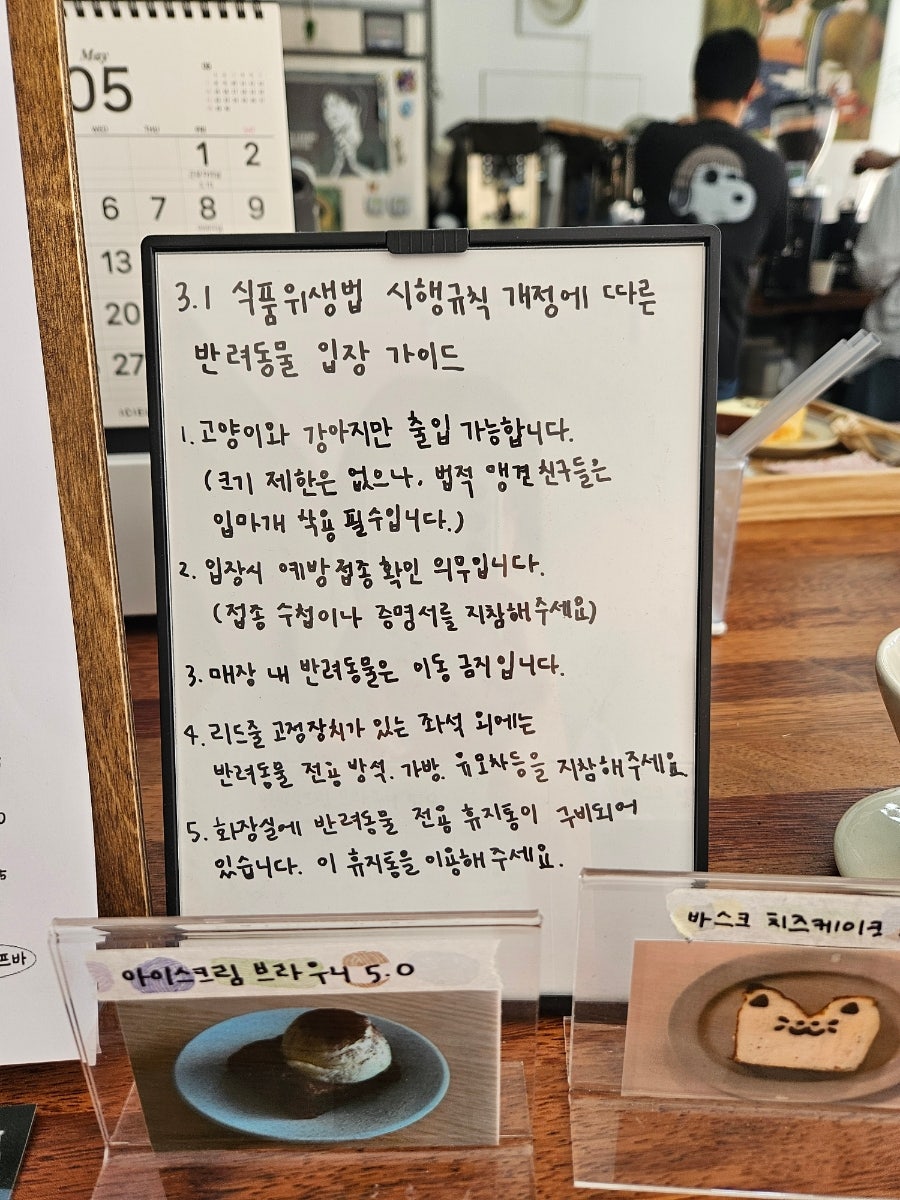 May
05
WED THU FRI SAT
1 2
6 7 8 9
13
20
27
3.1 식품위생법 시행규칙 개정에 따른
반려동물 입장 가이드
1. 고양이와 강아지만 출입 가능합니다.
(크기 제한은 없으나, 법적 맹견 친구들은
입마개 착용 필수입니다.)
2. 입장시 예방접종 확인 의무입니다.
(접종 수첩이나 증명서를 지참해주세요)
3. 매장 내 반려동물은 이동 금지입니다.
4. 리드줄 고정장치가 있는 좌석 외에는
반려동물 전용 방석. 가방. 유모차등을 지참해주세요
5. 화장실에 반려동물 전용 휴지통이 구비되어
있습니다. 이 휴지통을 이용해 주세요.
프바
아이스크림 브라우니 5.0
바스크 치즈케이크